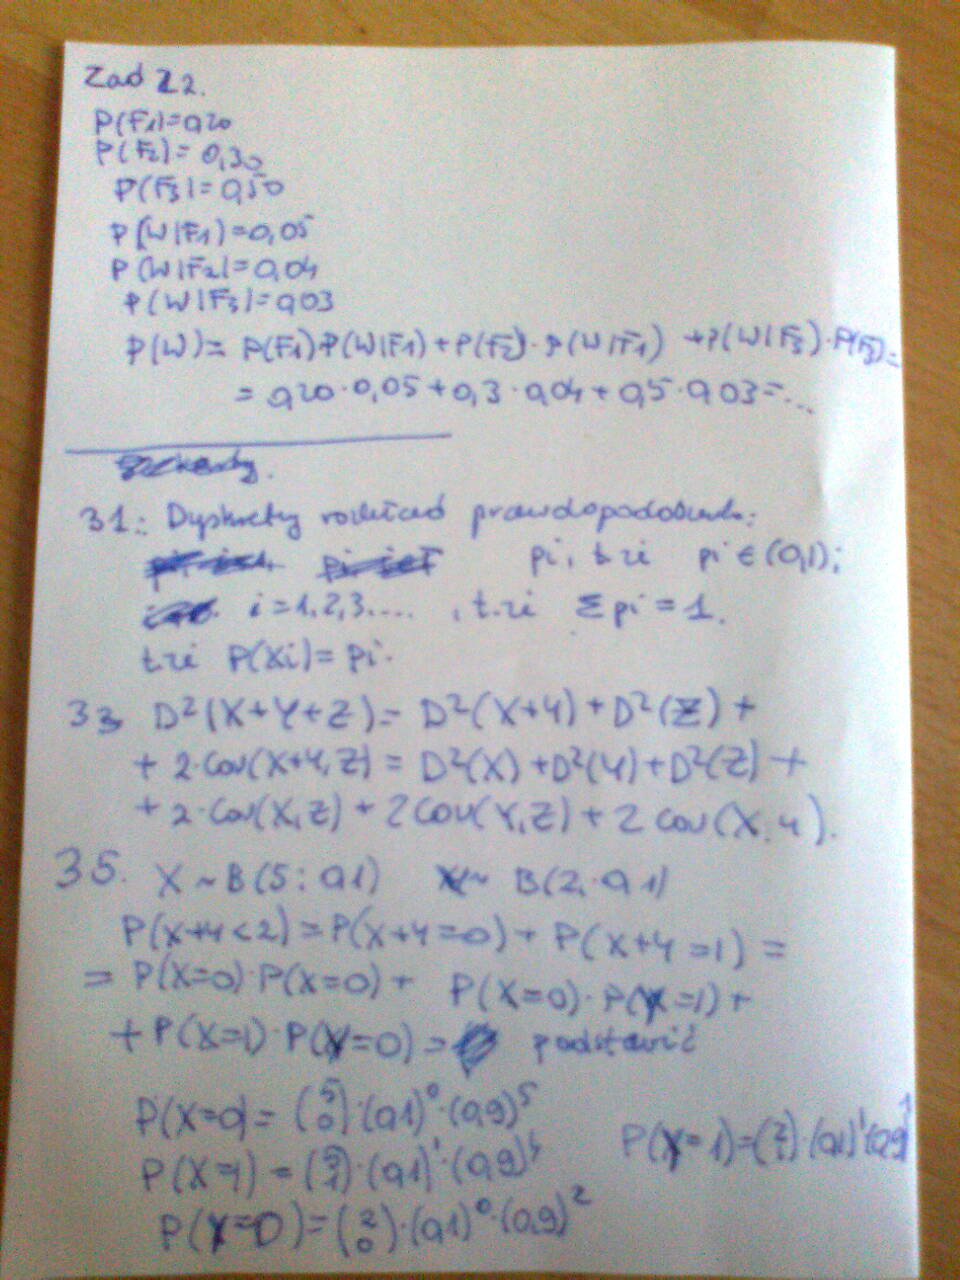 Zad 22.
P(F1)=0,20
P(F2)=0,30
P(F3)=0,50
P(W|F1)=0,05
P(W|F2)=0,04
P(W|F3)=0,03
P(W)= P(F1)·P(W|F1)+P(F2)·P(W|F1) +P(W|F3)·P(F3)=
= 0,20·0,05+0,3·0,04+0,5·0,03=...
31: Dyskretny rozkład prawdopodobieństwa:
pi, t.że pi ∈ (0,1);
i=1,2,3...., t.że Σpi=1.
t.że P(Xi)= pi.
33 D²(X+Y+Z)= D²(X+Y)+D²(Z)+
+ 2·Cov(X+Y,Z) = D²(X)+D²(Y)+D²(Z)+
+ 2·Cov(X,Z) + 2Cov(Y,Z)+2 cov(X,Y).
35. X~B(5;0,1) Y~ B(2;0,1)
P(X+Y<2)=P(X+Y=0)+P(X+Y=1)=
= P(X=0)·P(X=0)+ P(X=0)·P(Y=1)+
+ P(X=1)·P(Y=0)= podstawić
P(X=0)=(5 0)·(0,1)⁰·(0,9)⁵
P(X=1)=(5 1)·(0,1)¹·(0,9)⁴ P(Y=1)=(2 1)·(0,1)¹(0,9)¹
P(Y=0)=(2 0)·(0,1)⁰·(0,9)²